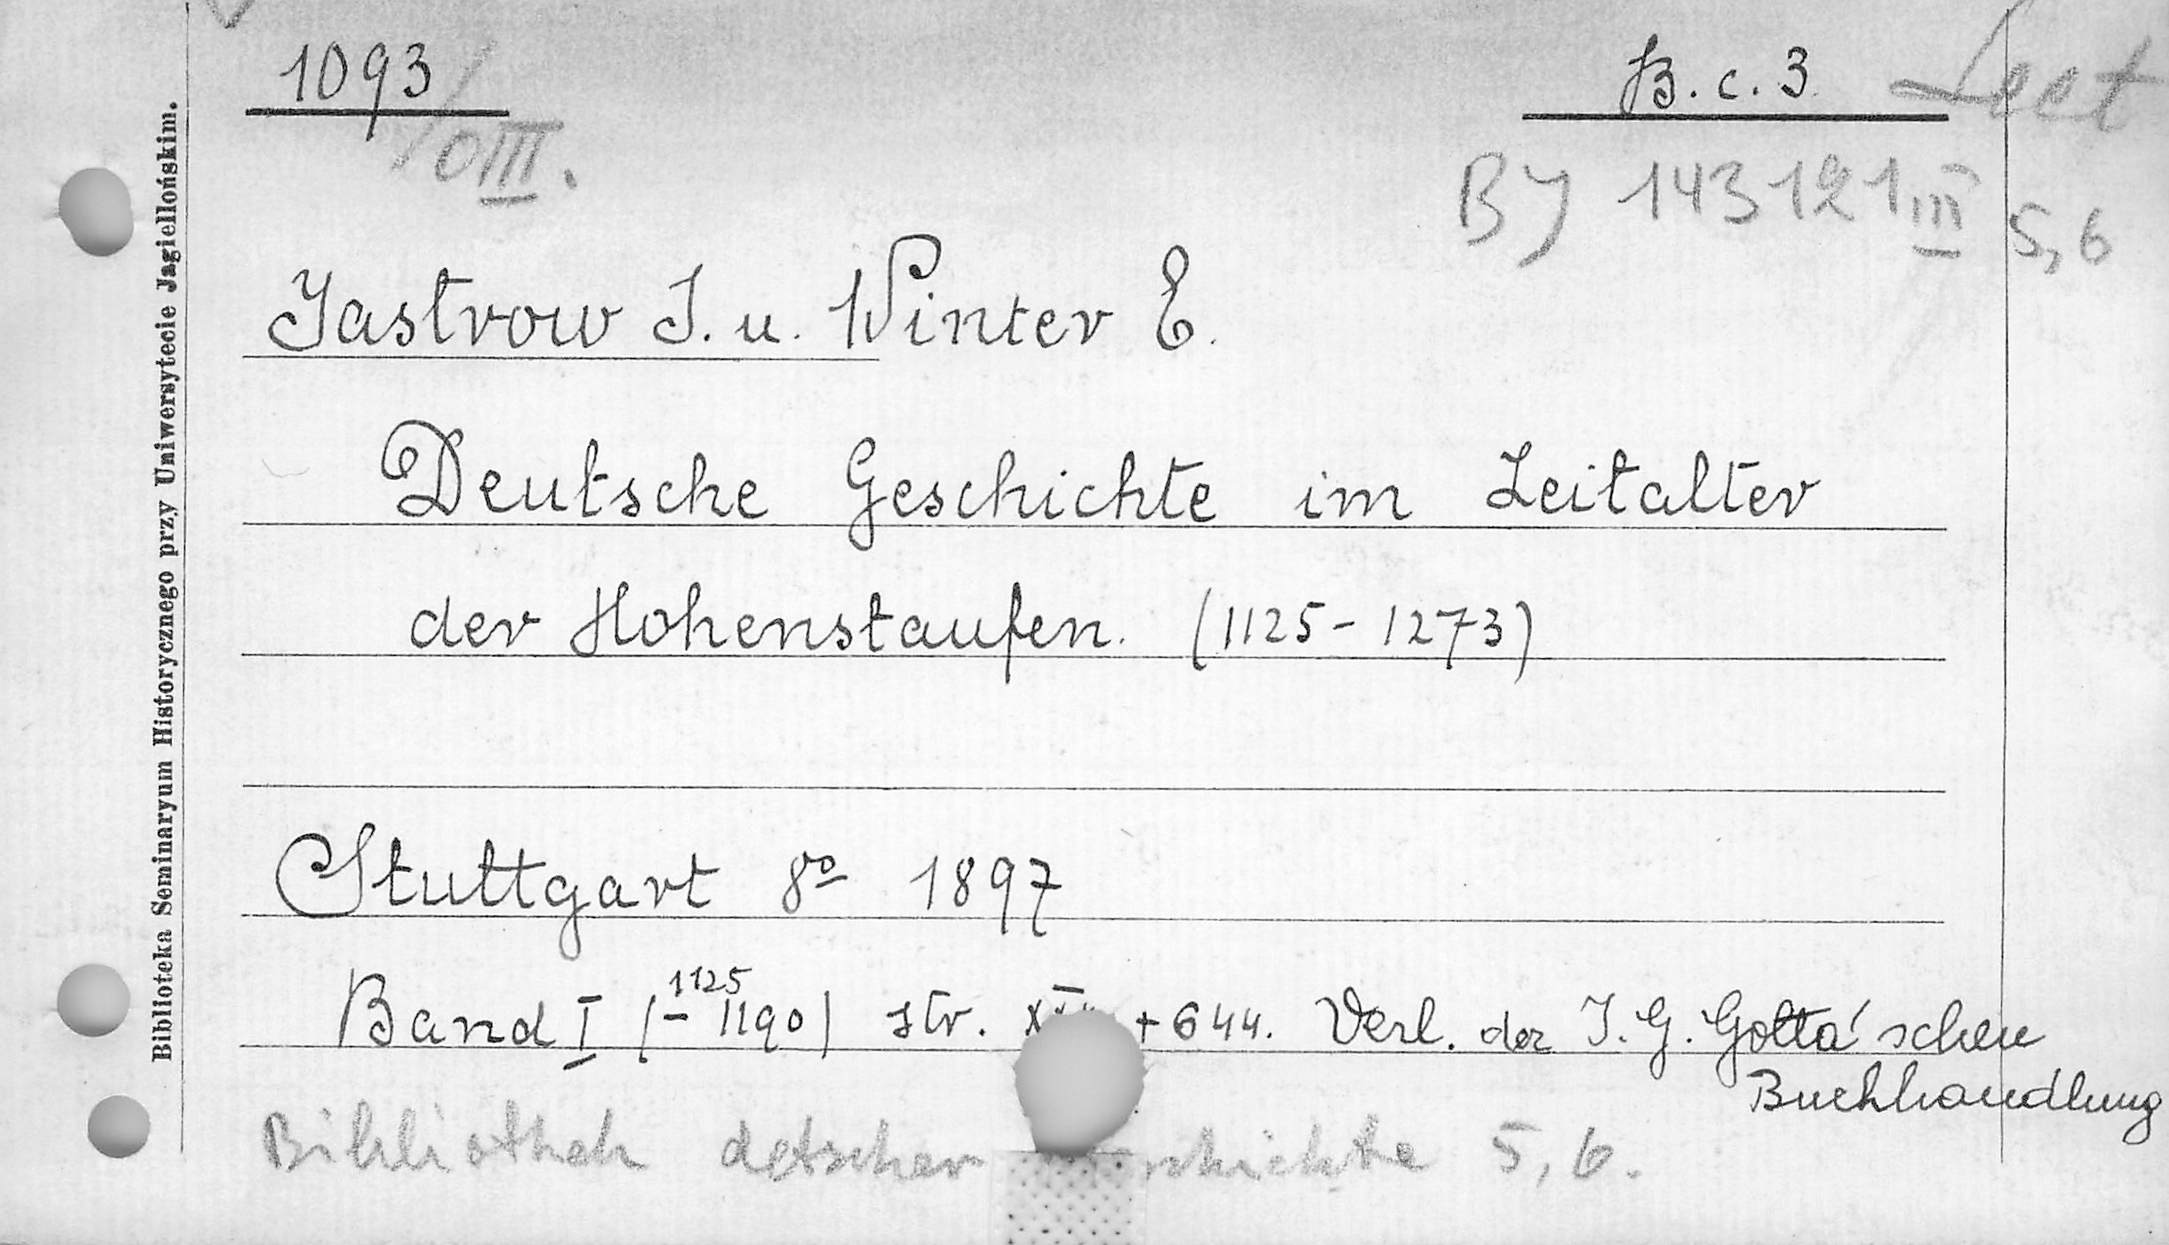 1093/
/OIII.
B. c. 3. Lect
BJ 143121 III 5,6
Jastrow J. u. Winter E.
Deutsche Geschichte im Zeitalter
der Hohenstaufen. (1125-1273)
Stuttgart 8º 1897
Band I (1125 - 1190) str. + 644. Verl. der J. G. Gotta'schen
Buchhandlung
Bibliothek detscher 5,6.
Biblioteka Seminaryum Historycznego przy Uniwersytecie Jagiellońskim.